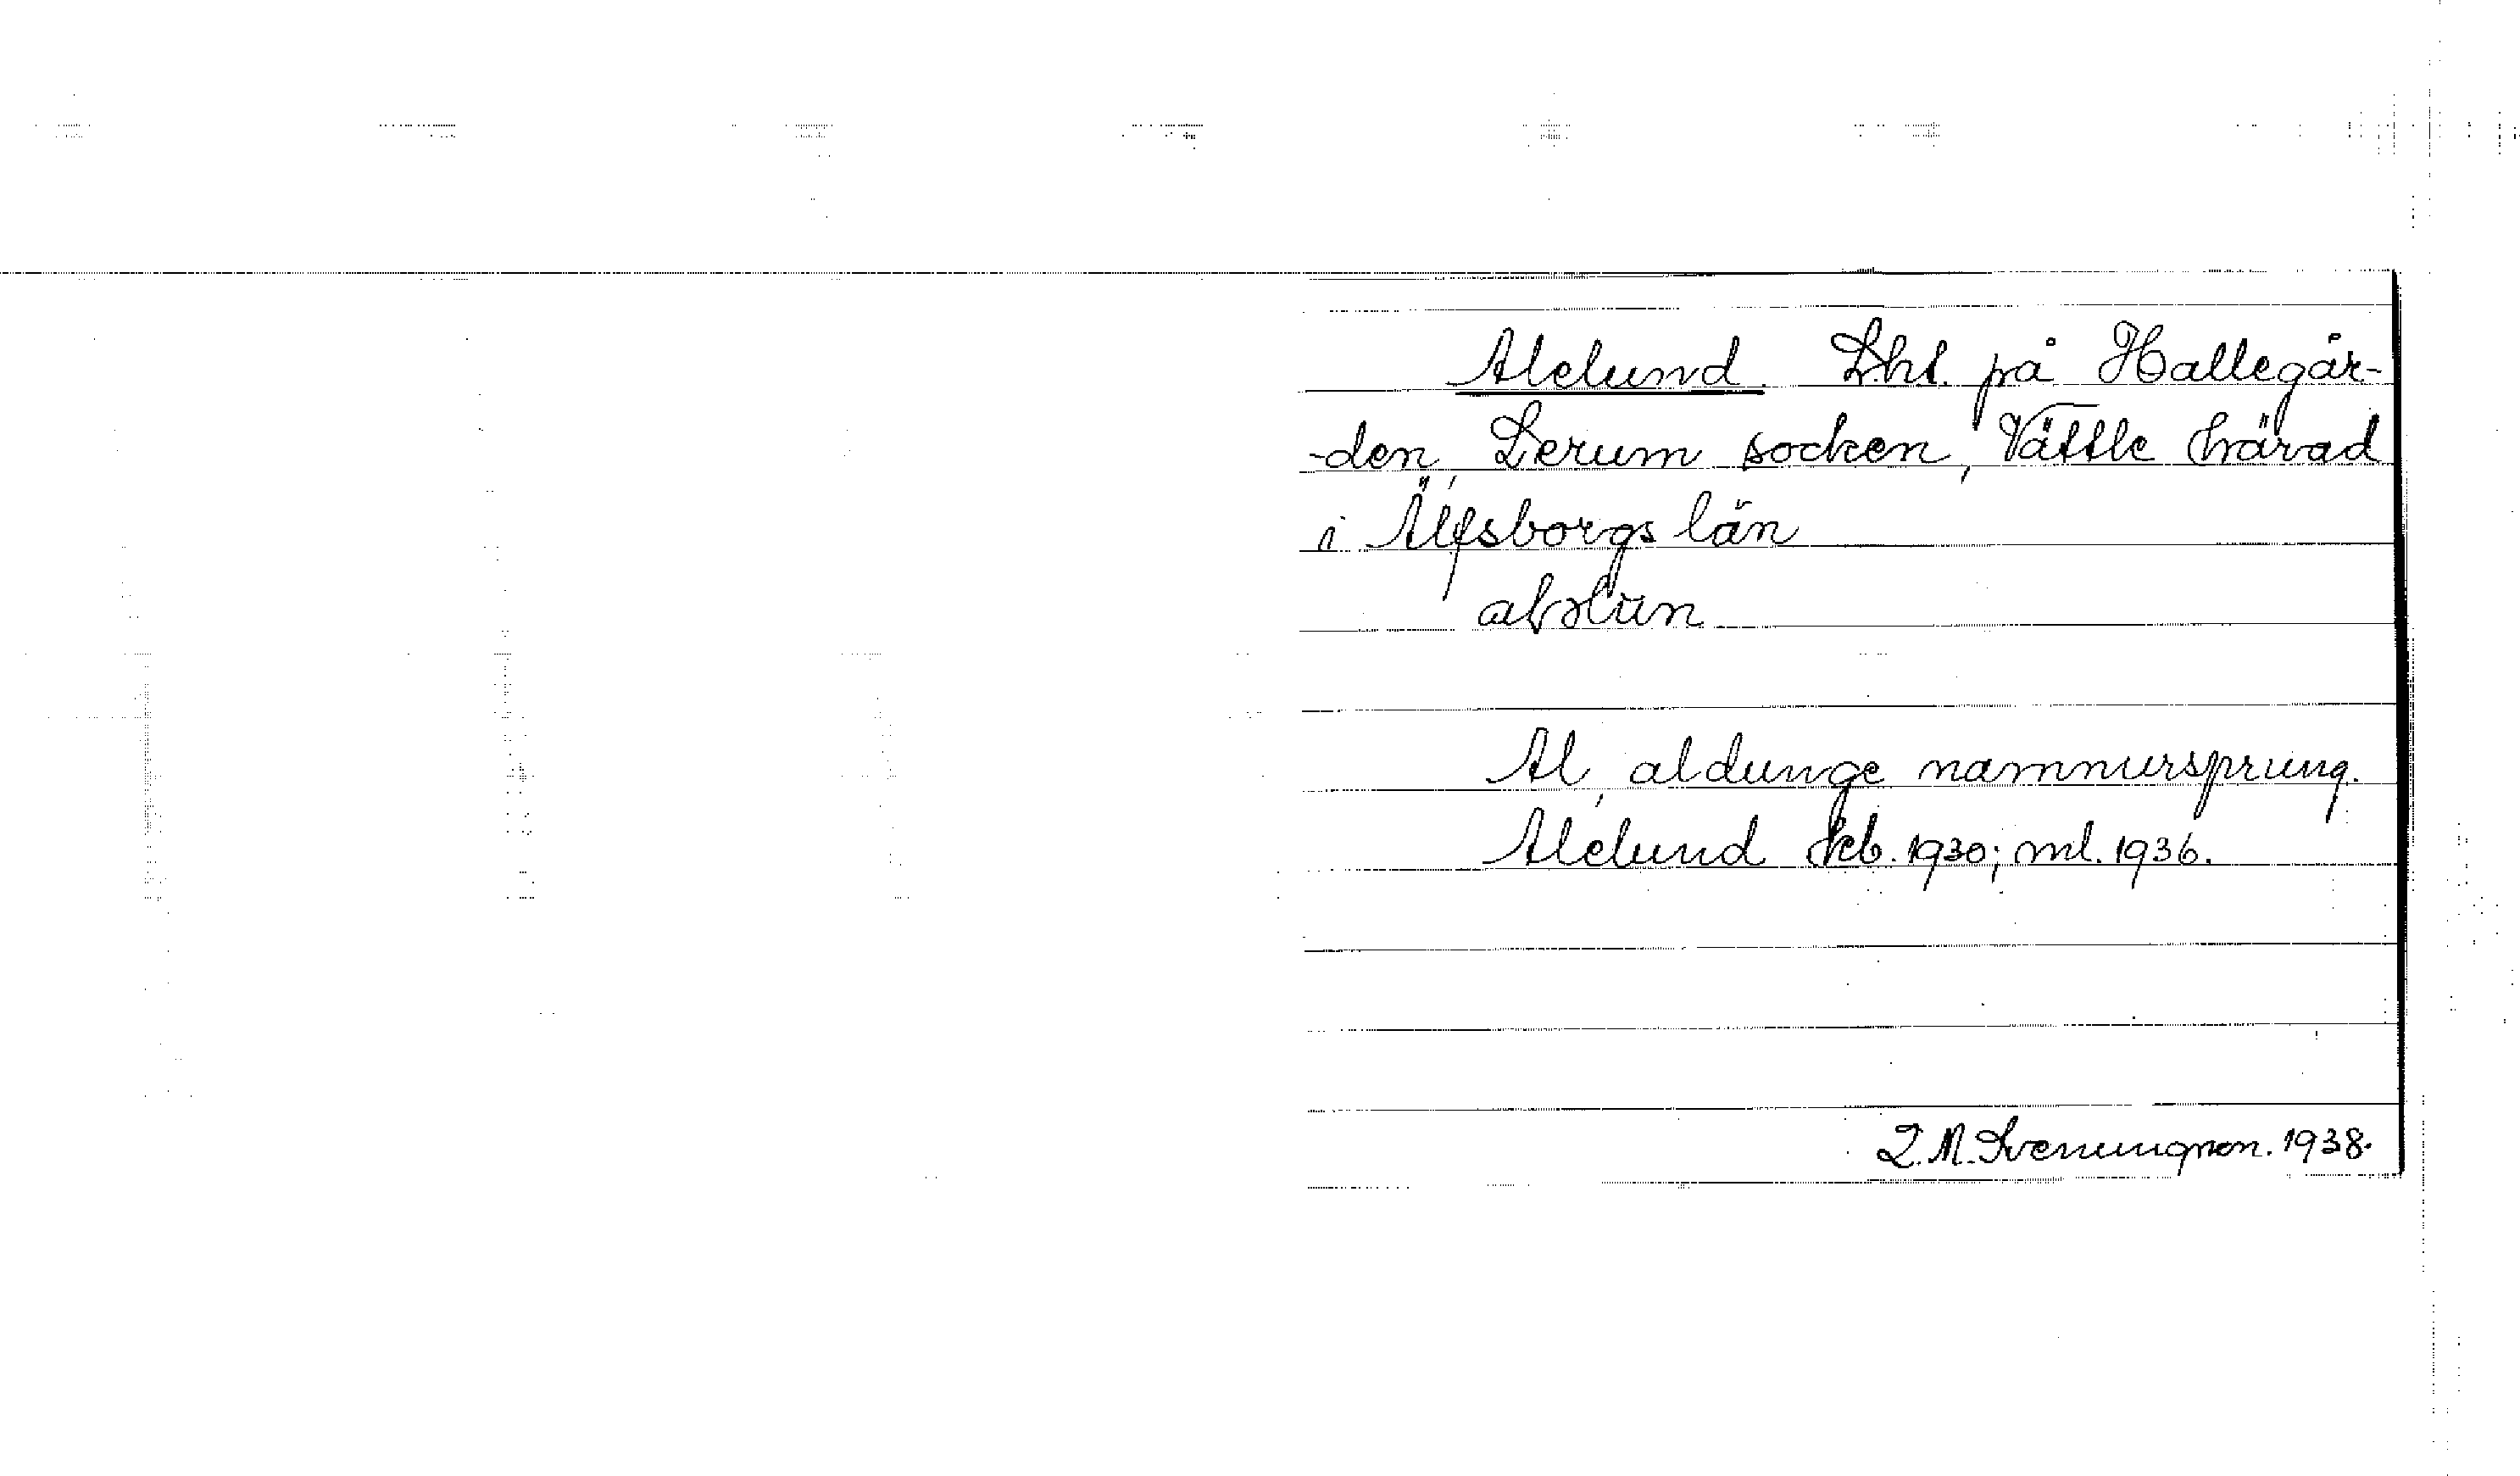 Alelund. Lht. på Hallegår-
-den, Lerum socken, Vättle härad
i Älfsborgs län
Al, aldunge namnursprung.
Alelund Jeb. 1930; ml. 1936.
1938.